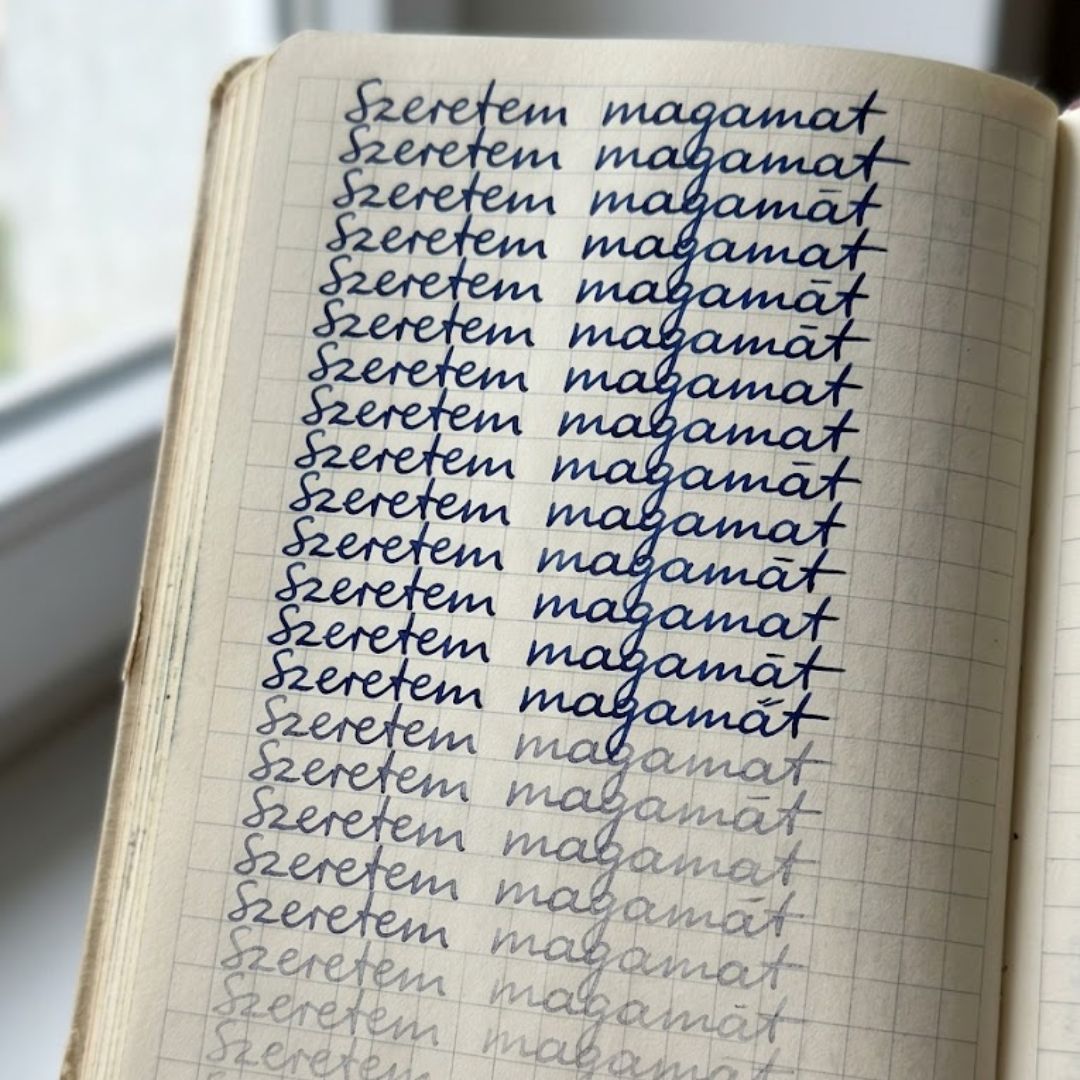 Szeretem magamat
Szeretem magamat
Szeretem magamāt
Szeretem magamat
Szeretem magamāt
Szeretem magamāt
Szeretem magamat
Szeretem magamat
Szeretem magamāt
Szeretem magamat
Szeretem magamāt
Szeretem magamat
Szeretem magamāt
Szeretem magama̋t
Szeretem magamat
Szeretem magamāt
Szeretem magamat
Szeretem magamát
Szeretem magamat
Szeretem magamát
Szeretem magamat
Szeretem